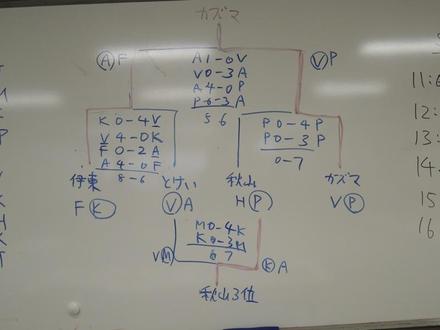 カズマ
Ⓐ F
A 1-0 V
V 0-3 A
A 4-0 P
P 0-3 A
8 6
Ⓥ P
K 0-4 V
V 4-0 K
F 0-2 A
A 4-0 F
8-6
P 0-4 P
P 0-3 P
0-7
伊東
とけい
秋山
カズマ
F Ⓚ
Ⓥ A
H Ⓟ
V Ⓟ
M 0-4 K
K 0-3 M
6 7
V Ⓜ
Ⓚ A
秋山3位
11:
12:
13:
14
15
16